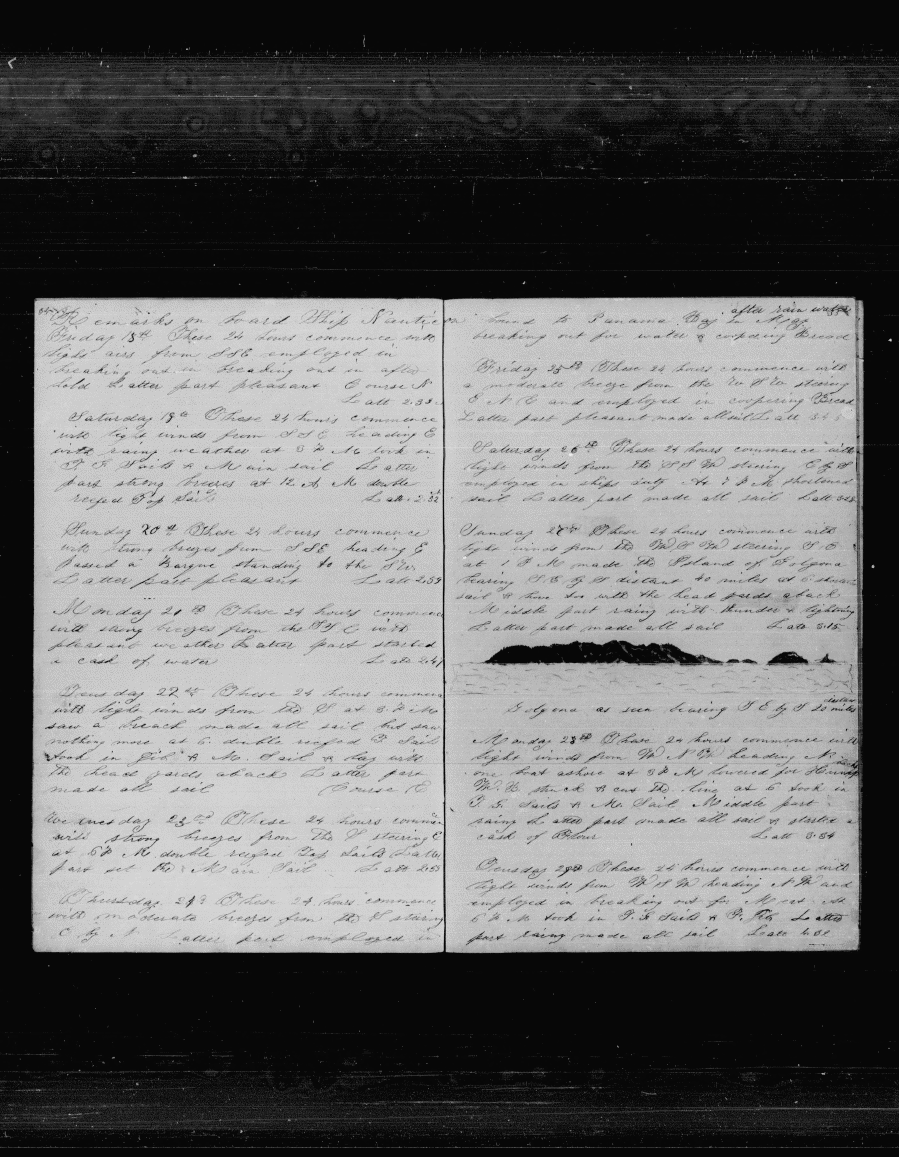 Remarks on board Ship Nauticon
Friday 18th These 24 hours commence with
light airs from SSE employed in
breaking out in breaking out in after
hold Latter part pleasant Course N
Latt 2.33
Saturday 19th These 24 hours commence
with light winds from SSE heading E
with rainy weather at 3 P M took in
T G Sails & Main sail Latter
part strong breezes at 12 A M double
reefed Top Sails Latt 2.32
Sunday 20th These 24 hours commence
with strong breezes from SSE heading E
Passed a Barque standing to the
Latter part pleasant Latt 2.39
Monday 21st These 24 hours commence
with strong breezes from the with
pleasant weather Latter part started
a cask of water Latt 2.41
Teusday 22nd These 24 hours commence
with light winds from the S at 3 P M
saw a breach made all sail but saw
nothing more at 6 double reefed T Sails
took in Jib & M. Sail & lay with
the head yards aback Latter part
made all sail Course E
Wensday 23rd These 24 hours commence
with strong breezes from the S steering E
at 6 P M double reefed Top Sails Latter
part set the Main Sail Latt 2.53
Thursday 24th These 24 hours commence
with moderate breezes from the S steering
E by N Latter part employed in
after rain water
bound to Panama Bay in
breaking out for water & coopering Bread
Friday 25th These 24 hours commence with
a moderate breeze from the W S W steering
E N E and employed in coopering Bread
Latter part pleasant made all sail Latt
Saturday 26th These 24 hours commence with
light winds from the S S W steering E by S
employed in ships duty At 7 P M shortened
sail Latter part made all sail Latt
Sunday 27th These 24 hours commence with
light winds from the steering S E
at 1 P M made the Island of Golgona
bearing S E by S distant 40 miles at 6 shortened
sail & hove too with the head yards aback
Middle part rainy with thunder & lightning
Latter part made all sail Latt 3.15
Golgona as seen bearing S E by S distant 20 miles
Monday 28th These 24 hours commence with
light winds from W N W heading N
one boat ashore at 3 P M lowered for Humpbacks
W. B. struck & cut the line at 6 took in
T. G. Sails & M. Sail Middle part
rainy Latter part made all sail & started a
cask of Flour Latt 3.34
Teusday 29th These 24 hours commence with
light winds from W N W heading N W and
employed in breaking out for Meat At
6 P M took in T. G. Sails & Latter
part rainy made all sail Latt